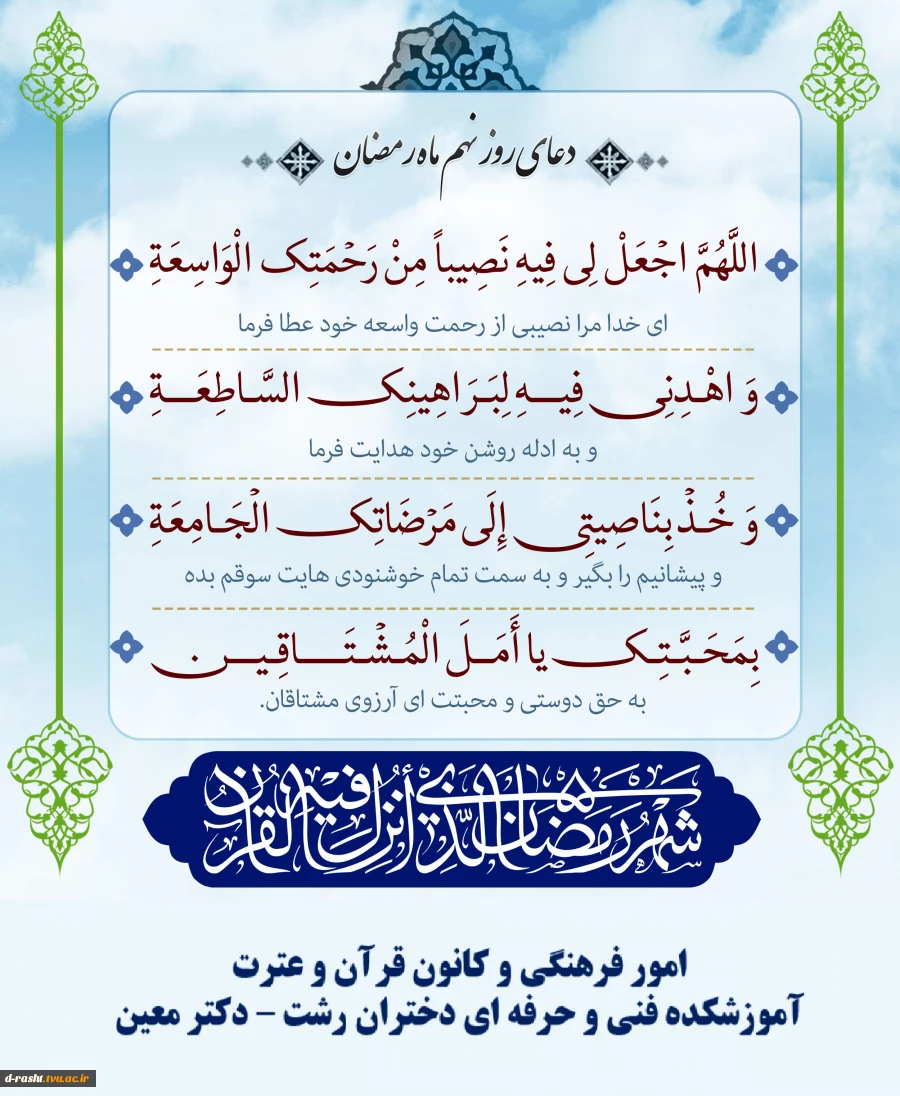 دعای روز نهم ماه رمضان
اللَّهُمَّ اجْعَلْ لِی فِیهِ نَصِیباً مِنْ رَحْمَتِکَ الْوَاسِعَةِ
ای خدا مرا نصیبی از رحمت واسعه خود عطا فرما
وَ اهْدِنِی فِیهِ لِبَرَاهِینِکَ السَّاطِعَةِ
و به ادله روشن خود هدایت فرما
وَ خُذْ بِنَاصِیَتِی إِلَی مَرْضَاتِکَ الْجَامِعَةِ
و پیشانیم را بگیر و به سمت تمام خوشنودی هایت سوقم بده
بِمَحَبَّتِکَ یا أَمَلَ الْمُشْتَاقِینَ
به حق دوستی و محبتت ای آرزوی مشتاقان.
شهر رمضان الذی أنزل فیه القرآن
امور فرهنگی و کانون قرآن و عترت
آموزشکده فنی و حرفه ای دختران رشت - دکتر معین
d-rasht.tvu.ac.ir